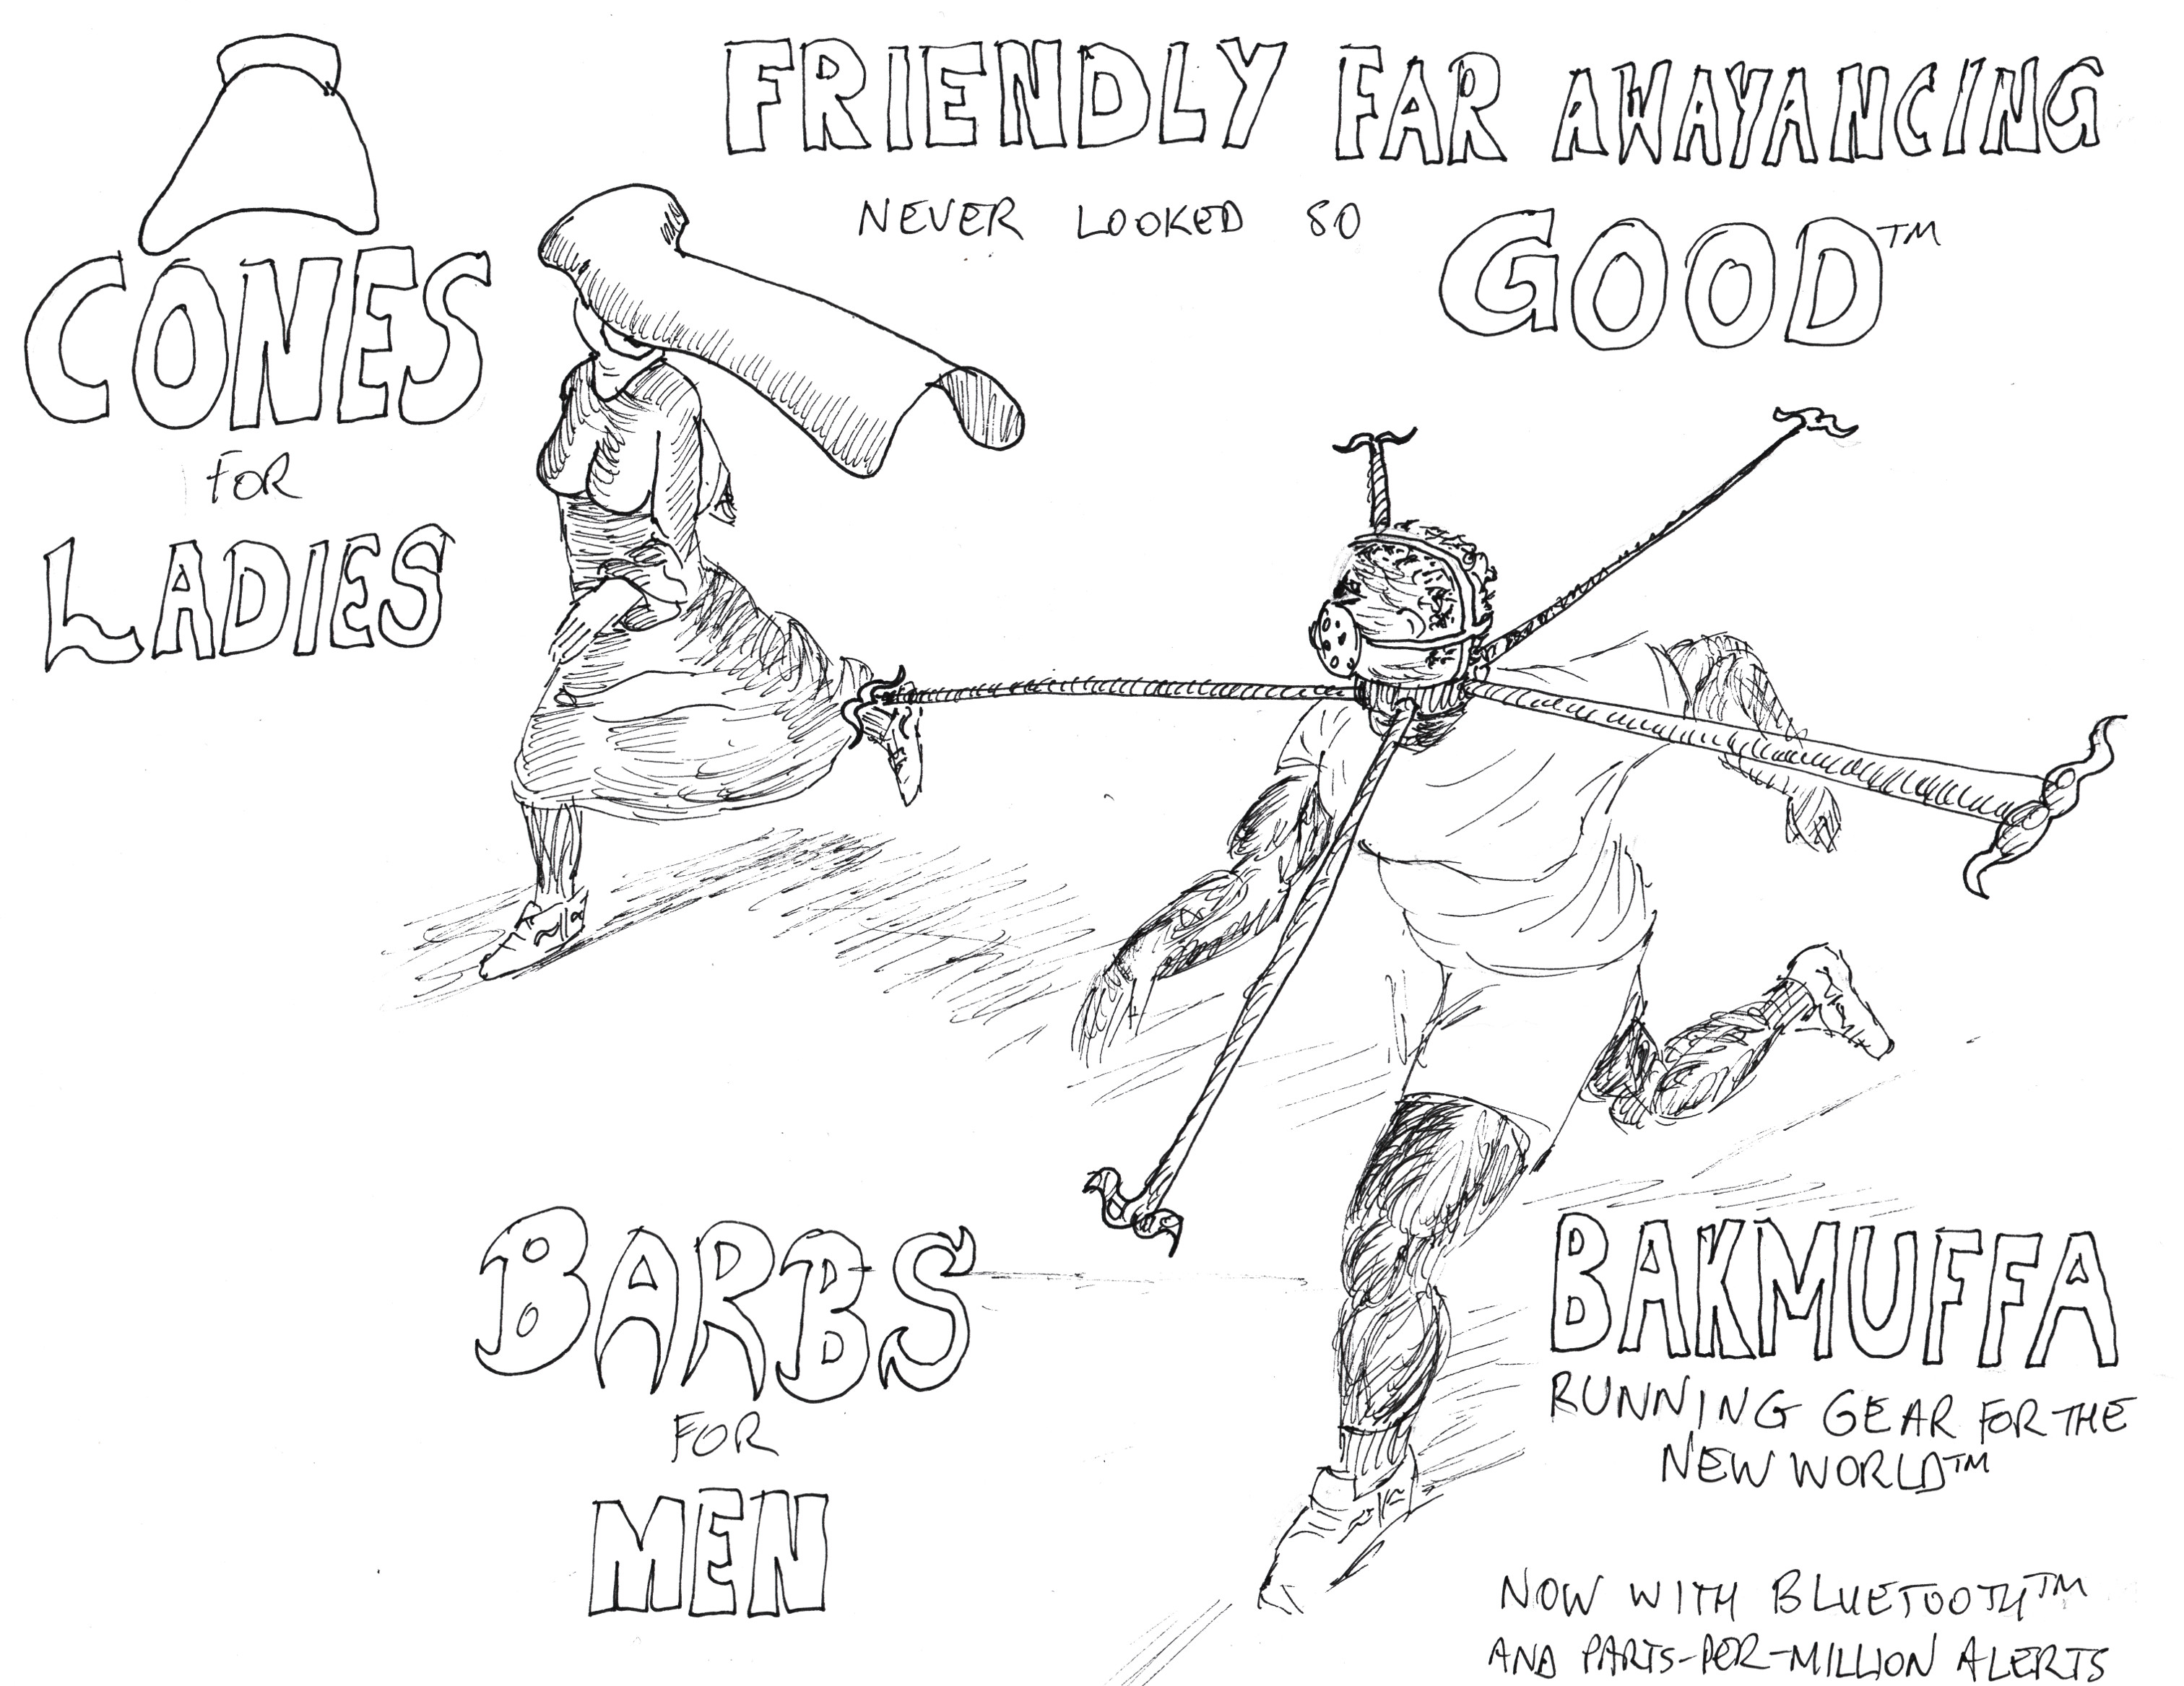 FRIENDLY FAR AWAYANCING
NEVER LOOKED SO
GOOD™
CONES
FOR
LADIES
BARBS
FOR
MEN
BAKMUFFA
RUNNING GEAR FOR THE
NEW WORLD™
NOW WITH BLUETOOTH™
AND PARTS-PER-MILLION ALERTS